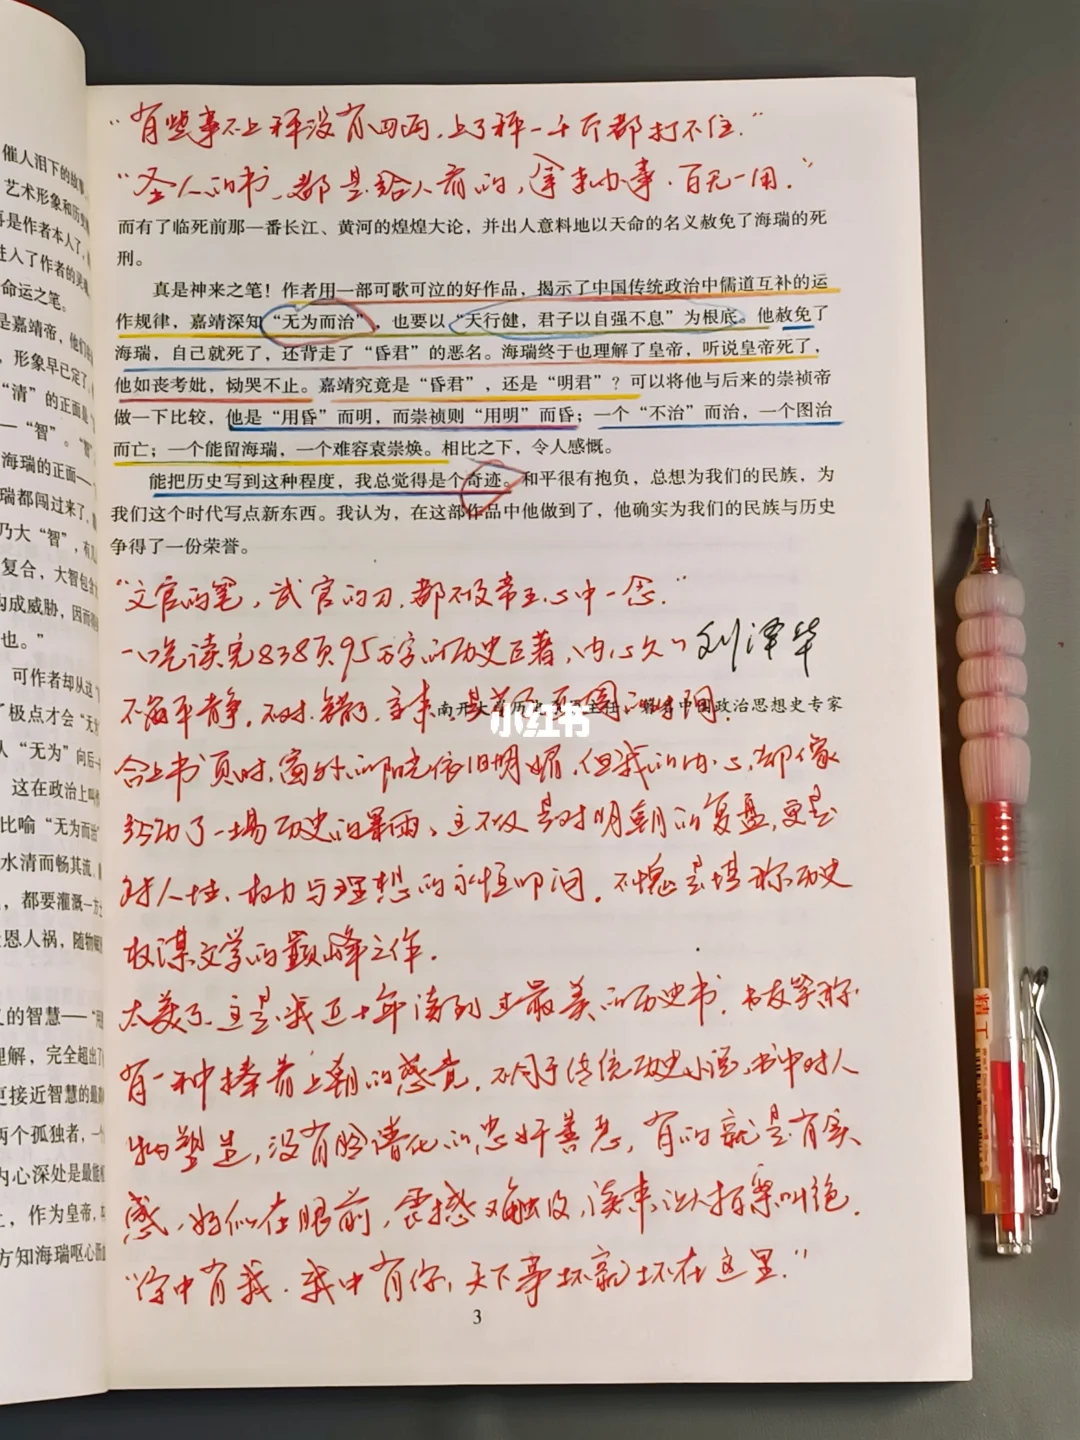 催人泪下的故事
艺术形象和历史
再是作者本人了，
进入了作者的灵魂
命运之笔。
是嘉靖帝，他们
，形象早已定了，
“清”的正面是
——“智”。“智
海瑞的正面——
瑞都闯过来了，
乃大“智”，有
复合，大智包含
构成威胁，因而
也。”
可作者却从这
了极点才会“无为
从“无为”向后一
这在政治上叫
比喻“无为而治”
水清而畅其流，
，都要灌溉一方
恩人祸，随物
义的智慧——“用
理解，完全超出了
更接近智慧的最
两个孤独者，一
内心深处是最能
上，作为皇帝，
方知海瑞呕心而
“有些事不上秤没有四两，上了秤一千斤都打不住.”
“圣人的书、都是给人看的，拿来办事.百无一用.”
而有了临死前那一番长江、黄河的煌煌大论，并出人意料地以天命的名义赦免了海瑞的死
刑。
真是神来之笔！作者用一部可歌可泣的好作品，揭示了中国传统政治中儒道互补的运
作规律，嘉靖深知“无为而治”，也要以“天行健，君子以自强不息”为根底。他赦免了
海瑞，自己就死了，还背走了“昏君”的恶名。海瑞终于也理解了皇帝，听说皇帝死了，
他如丧考妣，恸哭不止。嘉靖究竟是“昏君”，还是“明君”？可以将他与后来的崇祯帝
做一下比较，他是“用昏”而明，而崇祯则“用明”而昏；一个“不治”而治，一个图治
而亡；一个能留海瑞，一个难容袁崇焕。相比之下，令人感慨。
能把历史写到这种程度，我总觉得是个奇迹。和平很有抱负，总想为我们的民族，为
我们这个时代写点新东西。我认为，在这部作品中他做到了，他确实为我们的民族与历史
争得了一份荣誉。
“文官的笔，武官的刀.都不及帝王心中一念.”
一口气读完838页95万字的历史巨著，内心久久
刘泽华
不能平静，不对.错了.
南开大学历史 主任、著名中国政治思想史专家
合上书页时，窗外的阳光依旧明媚，但我的内心，却像
经历了一场历史的暴雨、这不仅是对明朝的复盘，更是
对人性、权力与理想的永恒叩问. 不愧是堪称历史
权谋文学的巅峰之作.
太美了.这是我近十年读到过最美的历史书. 书友笑称
有一种捧着上朝的感觉. 不同于传统历史小说，书中对人
物塑造，没有脸谱化的忠奸善恶，有的就是有实
感，好似在眼前，震撼又触及，读来让人拍案叫绝.
“你中有我.我中有你，天下事坏就坏在这里.”
3
小红书
精工